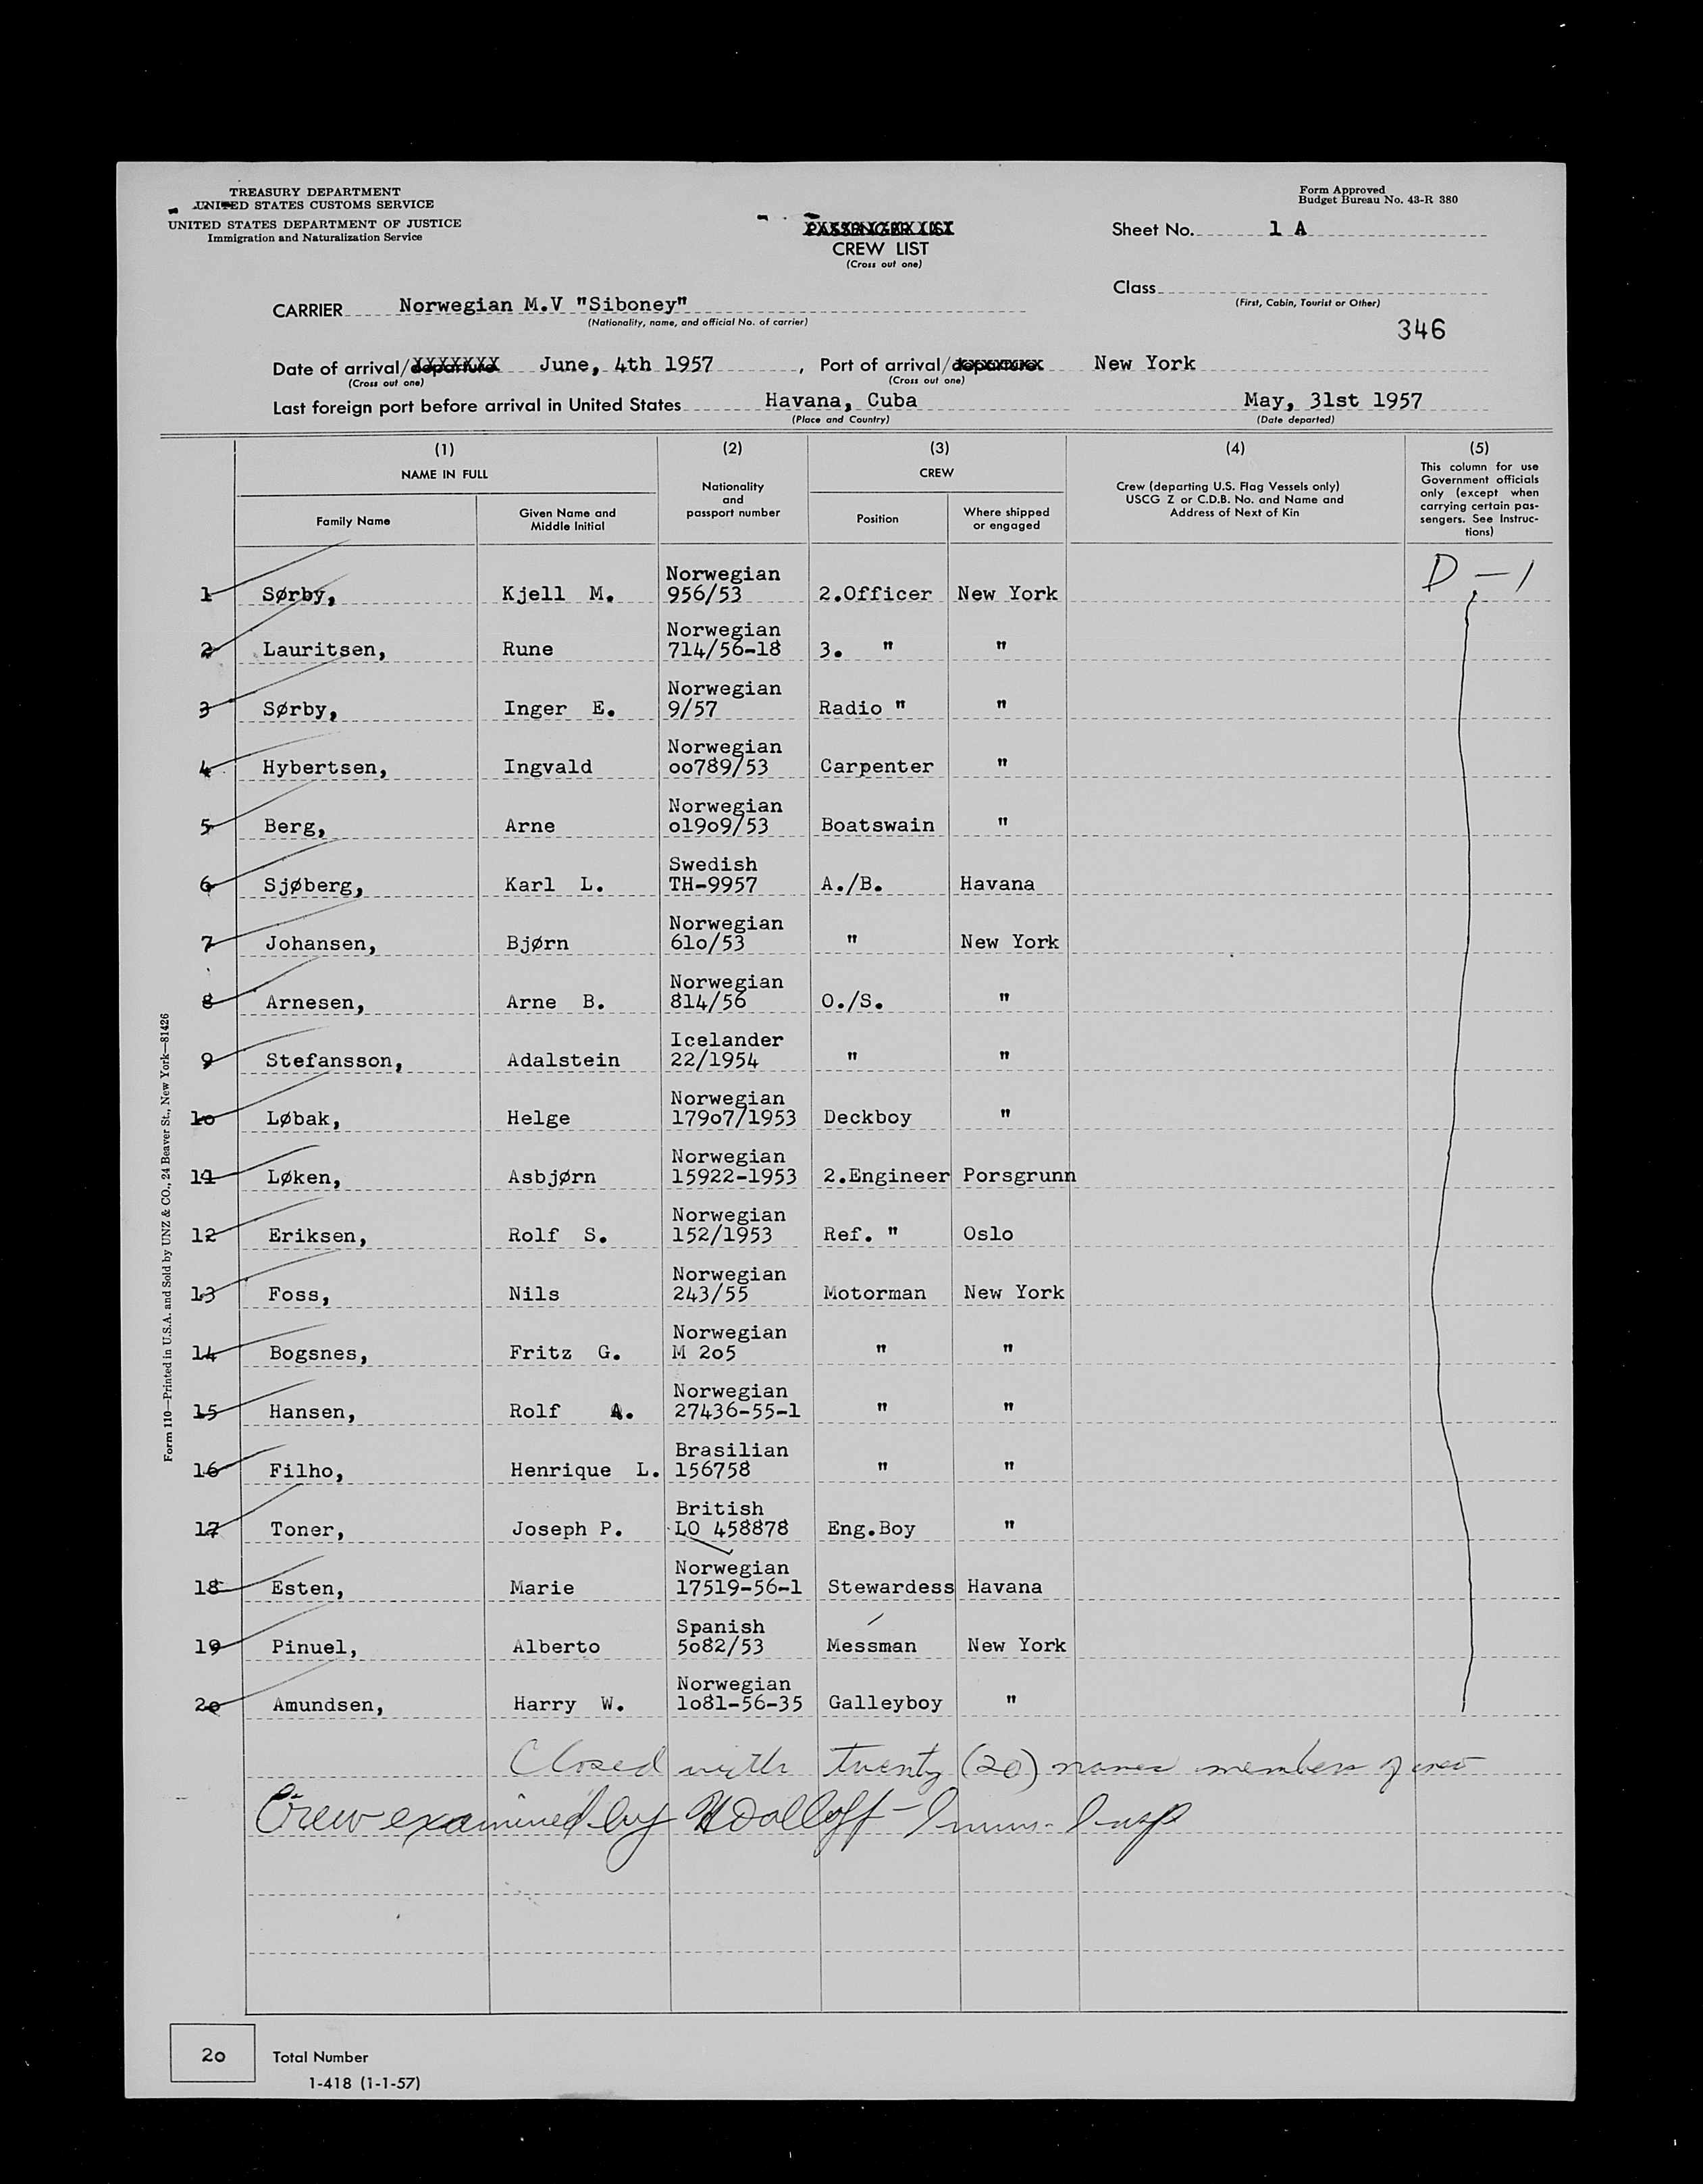 TREASURY DEPARTMENT
UNITED STATES CUSTOMS SERVICE
UNITED STATES DEPARTMENT OF JUSTICE
Immigration and Naturalization Service
Form Approved
Budget Bureau No. 43-R 380
PASSENGER LIST
CREW LIST
(Cross out one)
Sheet No. 1 A
Class
(First, Cabin, Tourist or Other)
CARRIER Norwegian M.V "Siboney"
(Nationality, name, and official No. of carrier)
346
Date of arrival/departure June, 4th 1957, Port of arrival/departure New York
(Cross out one) (Cross out one)
Last foreign port before arrival in United States Havana, Cuba May, 31st 1957
(Place and Country) (Date departed)
(1) (2) (3) (4) (5)
NAME IN FULL
Family Name
Given Name and Middle Initial
Nationality and passport number
CREW
Position
Where shipped or engaged
Crew (departing U.S. Flag Vessels only)
USCG Z or C.D.B. No. and Name and
Address of Next of Kin
This column for use
Government officials
only (except when
carrying certain pas-
sengers. See Instruc-
tions)
D - 1
1 Sørby, Kjell M. Norwegian 956/53 2.Officer New York
2 Lauritsen, Rune Norwegian 714/56-18 3. " "
3 Sørby, Inger E. Norwegian 9/57 Radio " "
4 Hybertsen, Ingvald Norwegian oo789/53 Carpenter "
5 Berg, Arne Norwegian o19o9/53 Boatswain "
6 Sjøberg, Karl L. Swedish TH-9957 A./B. Havana
7 Johansen, Bjørn Norwegian 61o/53 " New York
8 Arnesen, Arne B. Norwegian 814/56 O./S. "
9 Stefansson, Adalstein Icelander 22/1954 " "
1o Løbak, Helge Norwegian 179o7/1953 Deckboy "
11 Løken, Asbjørn Norwegian 15922-1953 2.Engineer Porsgrunn
12 Eriksen, Rolf S. Norwegian 152/1953 Ref. " Oslo
13 Foss, Nils Norwegian 243/55 Motorman New York
14 Bogsnes, Fritz G. Norwegian M 2o5 " "
15 Hansen, Rolf A. Norwegian 27436-55-1 " "
16 Filho, Henrique L. Brasilian 156758 " "
17 Toner, Joseph P. British LO 458878 Eng.Boy "
18 Esten, Marie Norwegian 17519-56-1 Stewardess Havana
19 Pinuel, Alberto Spanish 5o82/53 Messman New York
2o Amundsen, Harry W. Norwegian 1o81-56-35 Galleyboy "
Closed with twenty (20) names members of crew
Crew examined by - Imm. Insp
2o Total Number
I-418 (1-1-57)
Form 110—Printed in U.S.A. and Sold by UNZ & CO., 24 Beaver St., New York—81426